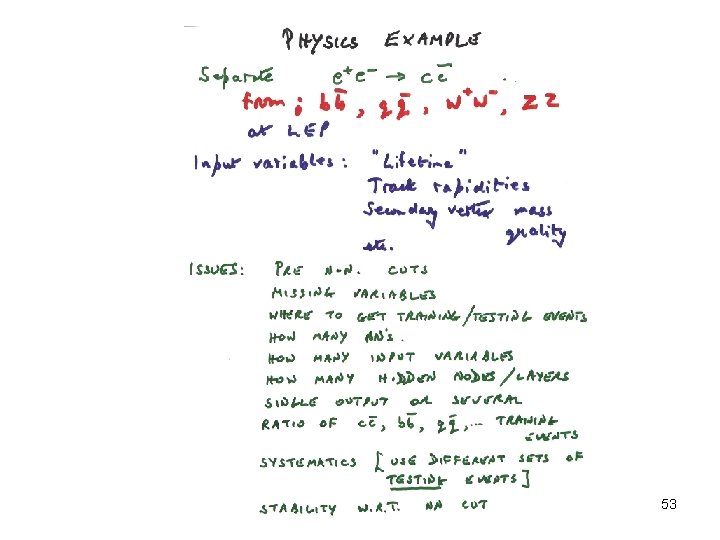 PHYSICS EXAMPLE
Separate e⁺e⁻ → cc̄
from ; bb̄, qq̄, W⁺W⁻, ZZ
at LEP
Input variables : "Lifetime"
Track rapidities
Secondary vertex mass
quality
etc.
ISSUES: PRE N.N. CUTS
MISSING VARIABLES
WHERE TO GET TRAINING/TESTING EVENTS
HOW MANY NN's.
HOW MANY INPUT VARIABLES
HOW MANY HIDDEN NODES/LAYERS
SINGLE OUTPUT OR SEVERAL
RATIO OF cc̄, bb̄, qq̄,... TRAINING
EVENTS
SYSTEMATICS [USE DIFFERENT SETS OF
TESTING EVENTS]
STABILITY W.R.T. NN CUT
53